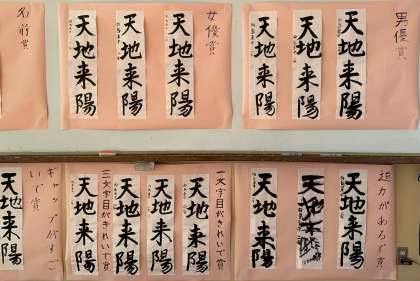 男優賞
天地来陽
天地来陽
天地来陽
女優賞
天地来陽
天地来陽
天地来陽
名前賞
天地来陽
迫力があるで賞
天地来陽
天地来陽
天地来陽
一文字目がきれいで賞
天地来陽
天地来陽
三文字目がきれいで賞
天地来陽
天地来陽
ギャップがすごいで賞
天地来陽